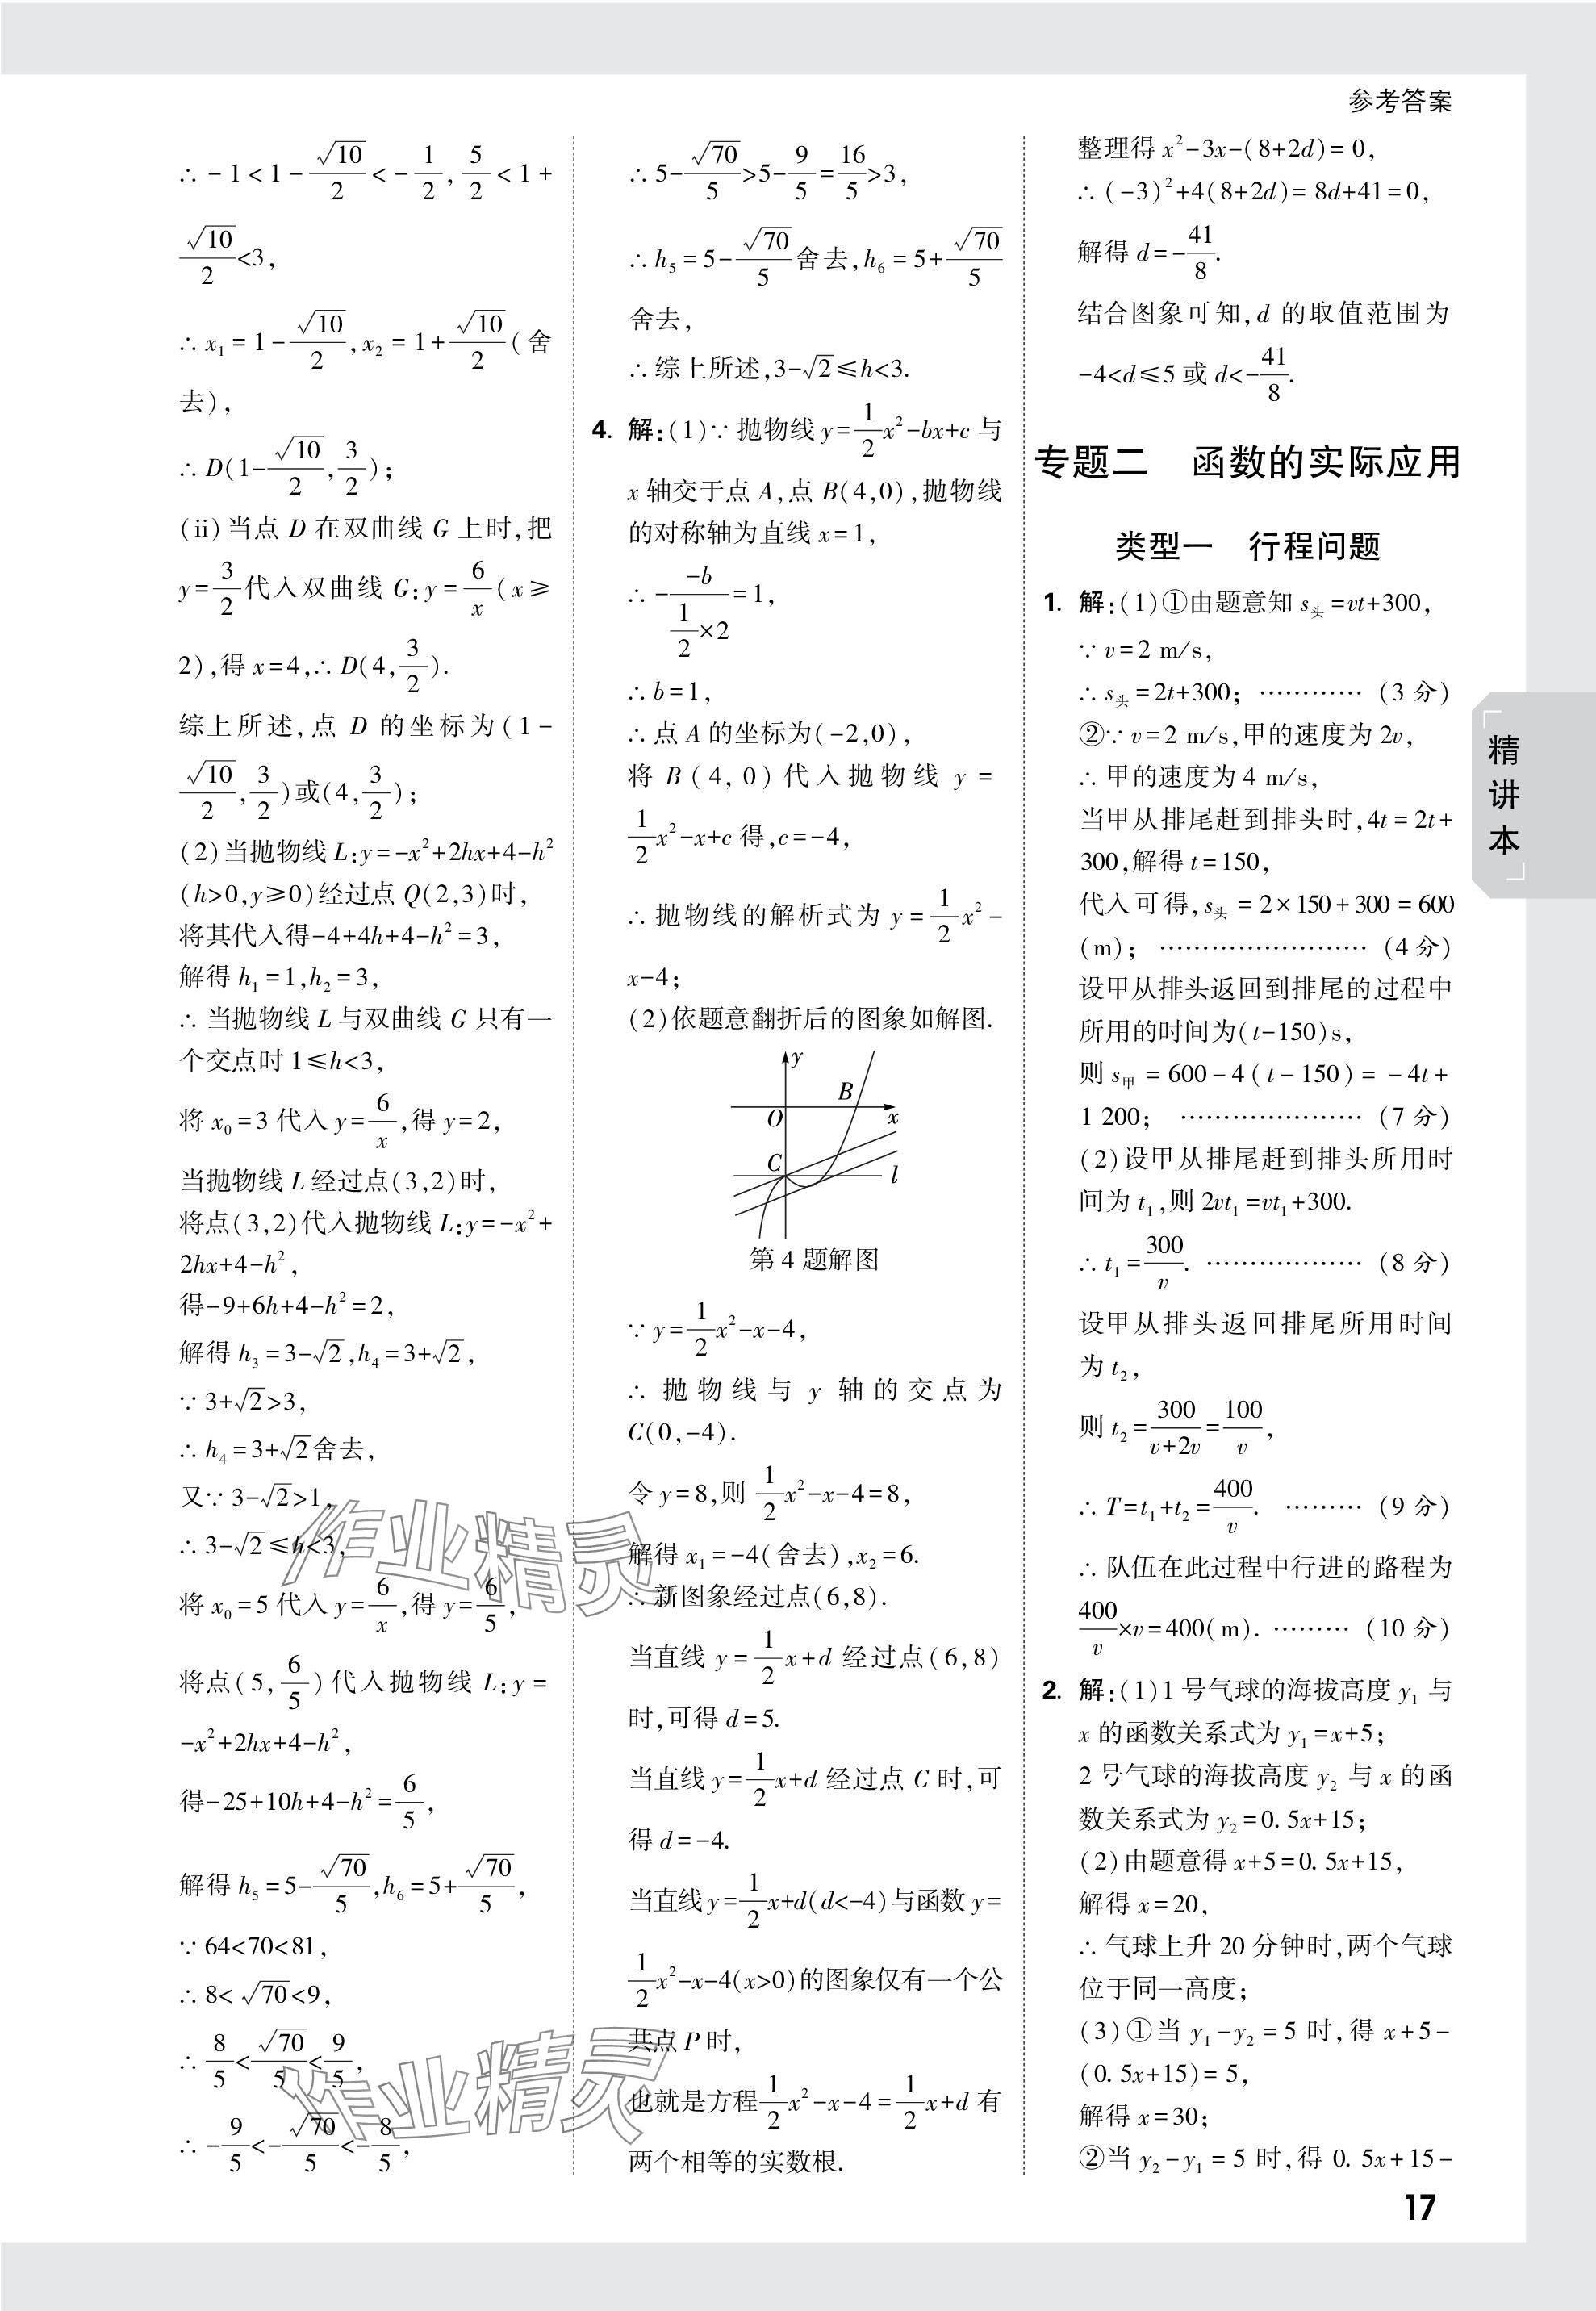 参考答案
∴ -1<1-√10/2<-1/2, 5/2<1+
√10/2<3,
∴ x₁=1-√10/2, x₂=1+√10/2(舍
去),
∴ D(1-√10/2, 3/2);
(ii)当点 D 在双曲线 G 上时,把
y=3/2代入双曲线 G:y=6/x(x≥
2),得 x=4,∴ D(4,3/2).
综上所述,点 D 的坐标为(1-
√10/2,3/2)或(4,3/2);
(2)当抛物线 L:y=-x²+2hx+4-h²
(h>0,y≥0)经过点 Q(2,3)时,
将其代入得-4+4h+4-h²=3,
解得 h₁=1,h₂=3,
∴ 当抛物线 L 与双曲线 G 只有一
个交点时 1≤h<3,
将 x₀=3 代入 y=6/x,得 y=2,
当抛物线 L 经过点(3,2)时,
将点(3,2)代入抛物线 L:y=-x²+
2hx+4-h²,
得-9+6h+4-h²=2,
解得 h₃=3-√2,h₄=3+√2,
∵ 3+√2>3,
∴ h₄=3+√2舍去,
又∵ 3-√2>1,
∴ 3-√2≤h<3,
将 x₀=5 代入 y=6/x,得 y=6/5,
将点(5,6/5)代入抛物线 L:y=
-x²+2hx+4-h²,
得-25+10h+4-h²=6/5,
解得 h₅=5-√70/5,h₆=5+√70/5,
∵ 64<70<81,
∴ 8<√70<9,
∴ 8/5<√70/5<9/5,
∴ -9/5<-√70/5<-8/5,
∴ 5-√70/5>5-9/5=16/5>3,
∴ h₅=5-√70/5舍去,h₆=5+√70/5
舍去,
∴ 综上所述,3-√2≤h<3.
4. 解:(1)∵ 抛物线 y=1/2x²-bx+c 与
x 轴交于点 A,点 B(4,0),抛物线
的对称轴为直线 x=1,
∴ -(-b)/(1/2×2)=1,
∴ b=1,
∴ 点 A 的坐标为(-2,0),
将 B(4,0)代入抛物线 y=
1/2x²-x+c 得,c=-4,
∴ 抛物线的解析式为 y=1/2x²-
x-4;
(2)依题意翻折后的图象如解图.
y
B
O
x
C
l
第 4 题解图
∵ y=1/2x²-x-4,
∴ 抛物线与 y 轴的交点为
C(0,-4).
令 y=8,则 1/2x²-x-4=8,
解得 x₁=-4(舍去),x₂=6.
∴ 新图象经过点(6,8).
当直线 y=1/2x+d 经过点(6,8)
时,可得 d=5.
当直线 y=1/2x+d 经过点 C 时,可
得 d=-4.
当直线 y=1/2x+d(d<-4)与函数 y=
1/2x²-x-4(x>0)的图象仅有一个公
共点 P 时,
也就是方程1/2x²-x-4=1/2x+d 有
两个相等的实数根.
整理得 x²-3x-(8+2d)=0,
∴ (-3)²+4(8+2d)=8d+41=0,
解得 d=-41/8.
结合图象可知,d 的取值范围为
-4<d≤5 或 d<-41/8.
专题二 函数的实际应用
类型一 行程问题
1. 解:(1)①由题意知 s头=vt+300,
∵ v=2 m/s,
∴ s头=2t+300; ………… (3 分)
②∵ v=2 m/s,甲的速度为 2v,
∴ 甲的速度为 4 m/s,
当甲从排尾赶到排头时,4t=2t+
300,解得 t=150,
代入可得,s头=2×150+300=600
(m); …………………… (4 分)
设甲从排头返回到排尾的过程中
所用的时间为(t-150)s,
则 s甲=600-4(t-150)=-4t+
1 200; ………………… (7 分)
(2)设甲从排尾赶到排头所用时
间为 t₁,则 2vt₁=vt₁+300.
∴ t₁=300/v. ……………… (8 分)
设甲从排头返回排尾所用时间
为 t₂,
则 t₂=300/(v+2v)=100/v,
∴ T=t₁+t₂=400/v. ……… (9 分)
∴ 队伍在此过程中行进的路程为
400/v×v=400(m). ……… (10 分)
2. 解:(1)1 号气球的海拔高度 y₁ 与
x 的函数关系式为 y₁=x+5;
2 号气球的海拔高度 y₂ 与 x 的函
数关系式为 y₂=0.5x+15;
(2)由题意得 x+5=0.5x+15,
解得 x=20,
∴ 气球上升 20 分钟时,两个气球
位于同一高度;
(3)①当 y₁-y₂=5 时,得 x+5-
(0.5x+15)=5,
解得 x=30;
②当 y₂-y₁=5 时,得 0.5x+15-
精讲本
17
作业精灵
作业精灵